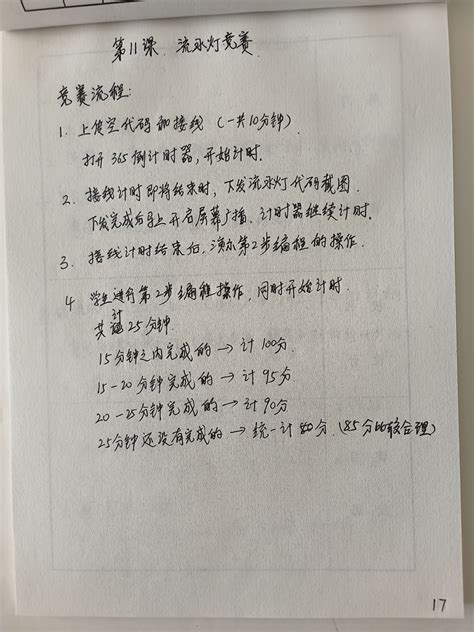 第11课 流水灯竞赛
竞赛流程:
1. 上传空代码和接线 (一共10分钟)
打开365倒计时器,开始计时.
2. 接线计时即将结束时,下发流水灯代码截图.
下发完成后马上开启屏幕广播.计时器继续计时.
3. 接线计时结束后,演示第2步编程的操作.
4 学生进行第2步编程操作,同时开始计时.
共计25分钟.
15分钟之内完成的→计100分.
15-20分钟完成的→计95分
20-25分钟完成的→计90分
25分钟还没有完成的→统一计80分.(85分比较合理)
17